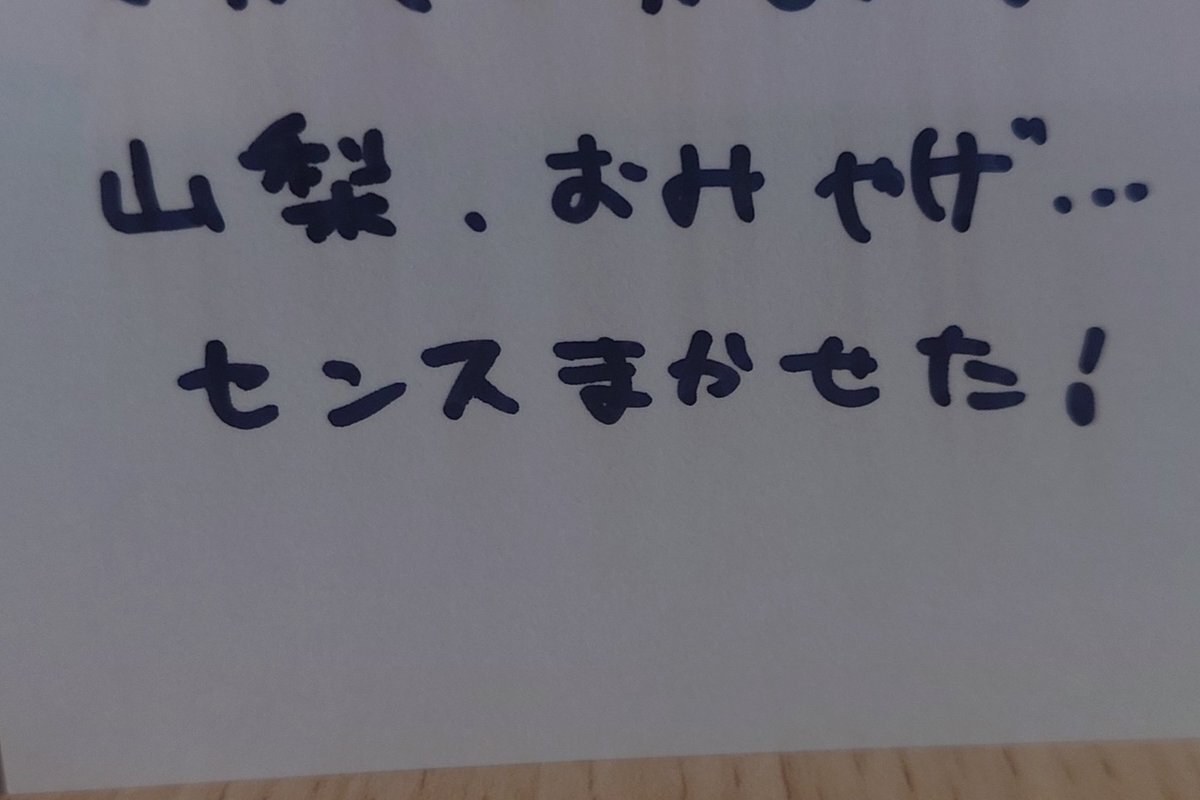 山梨.おみやげ...
センスまかせた!